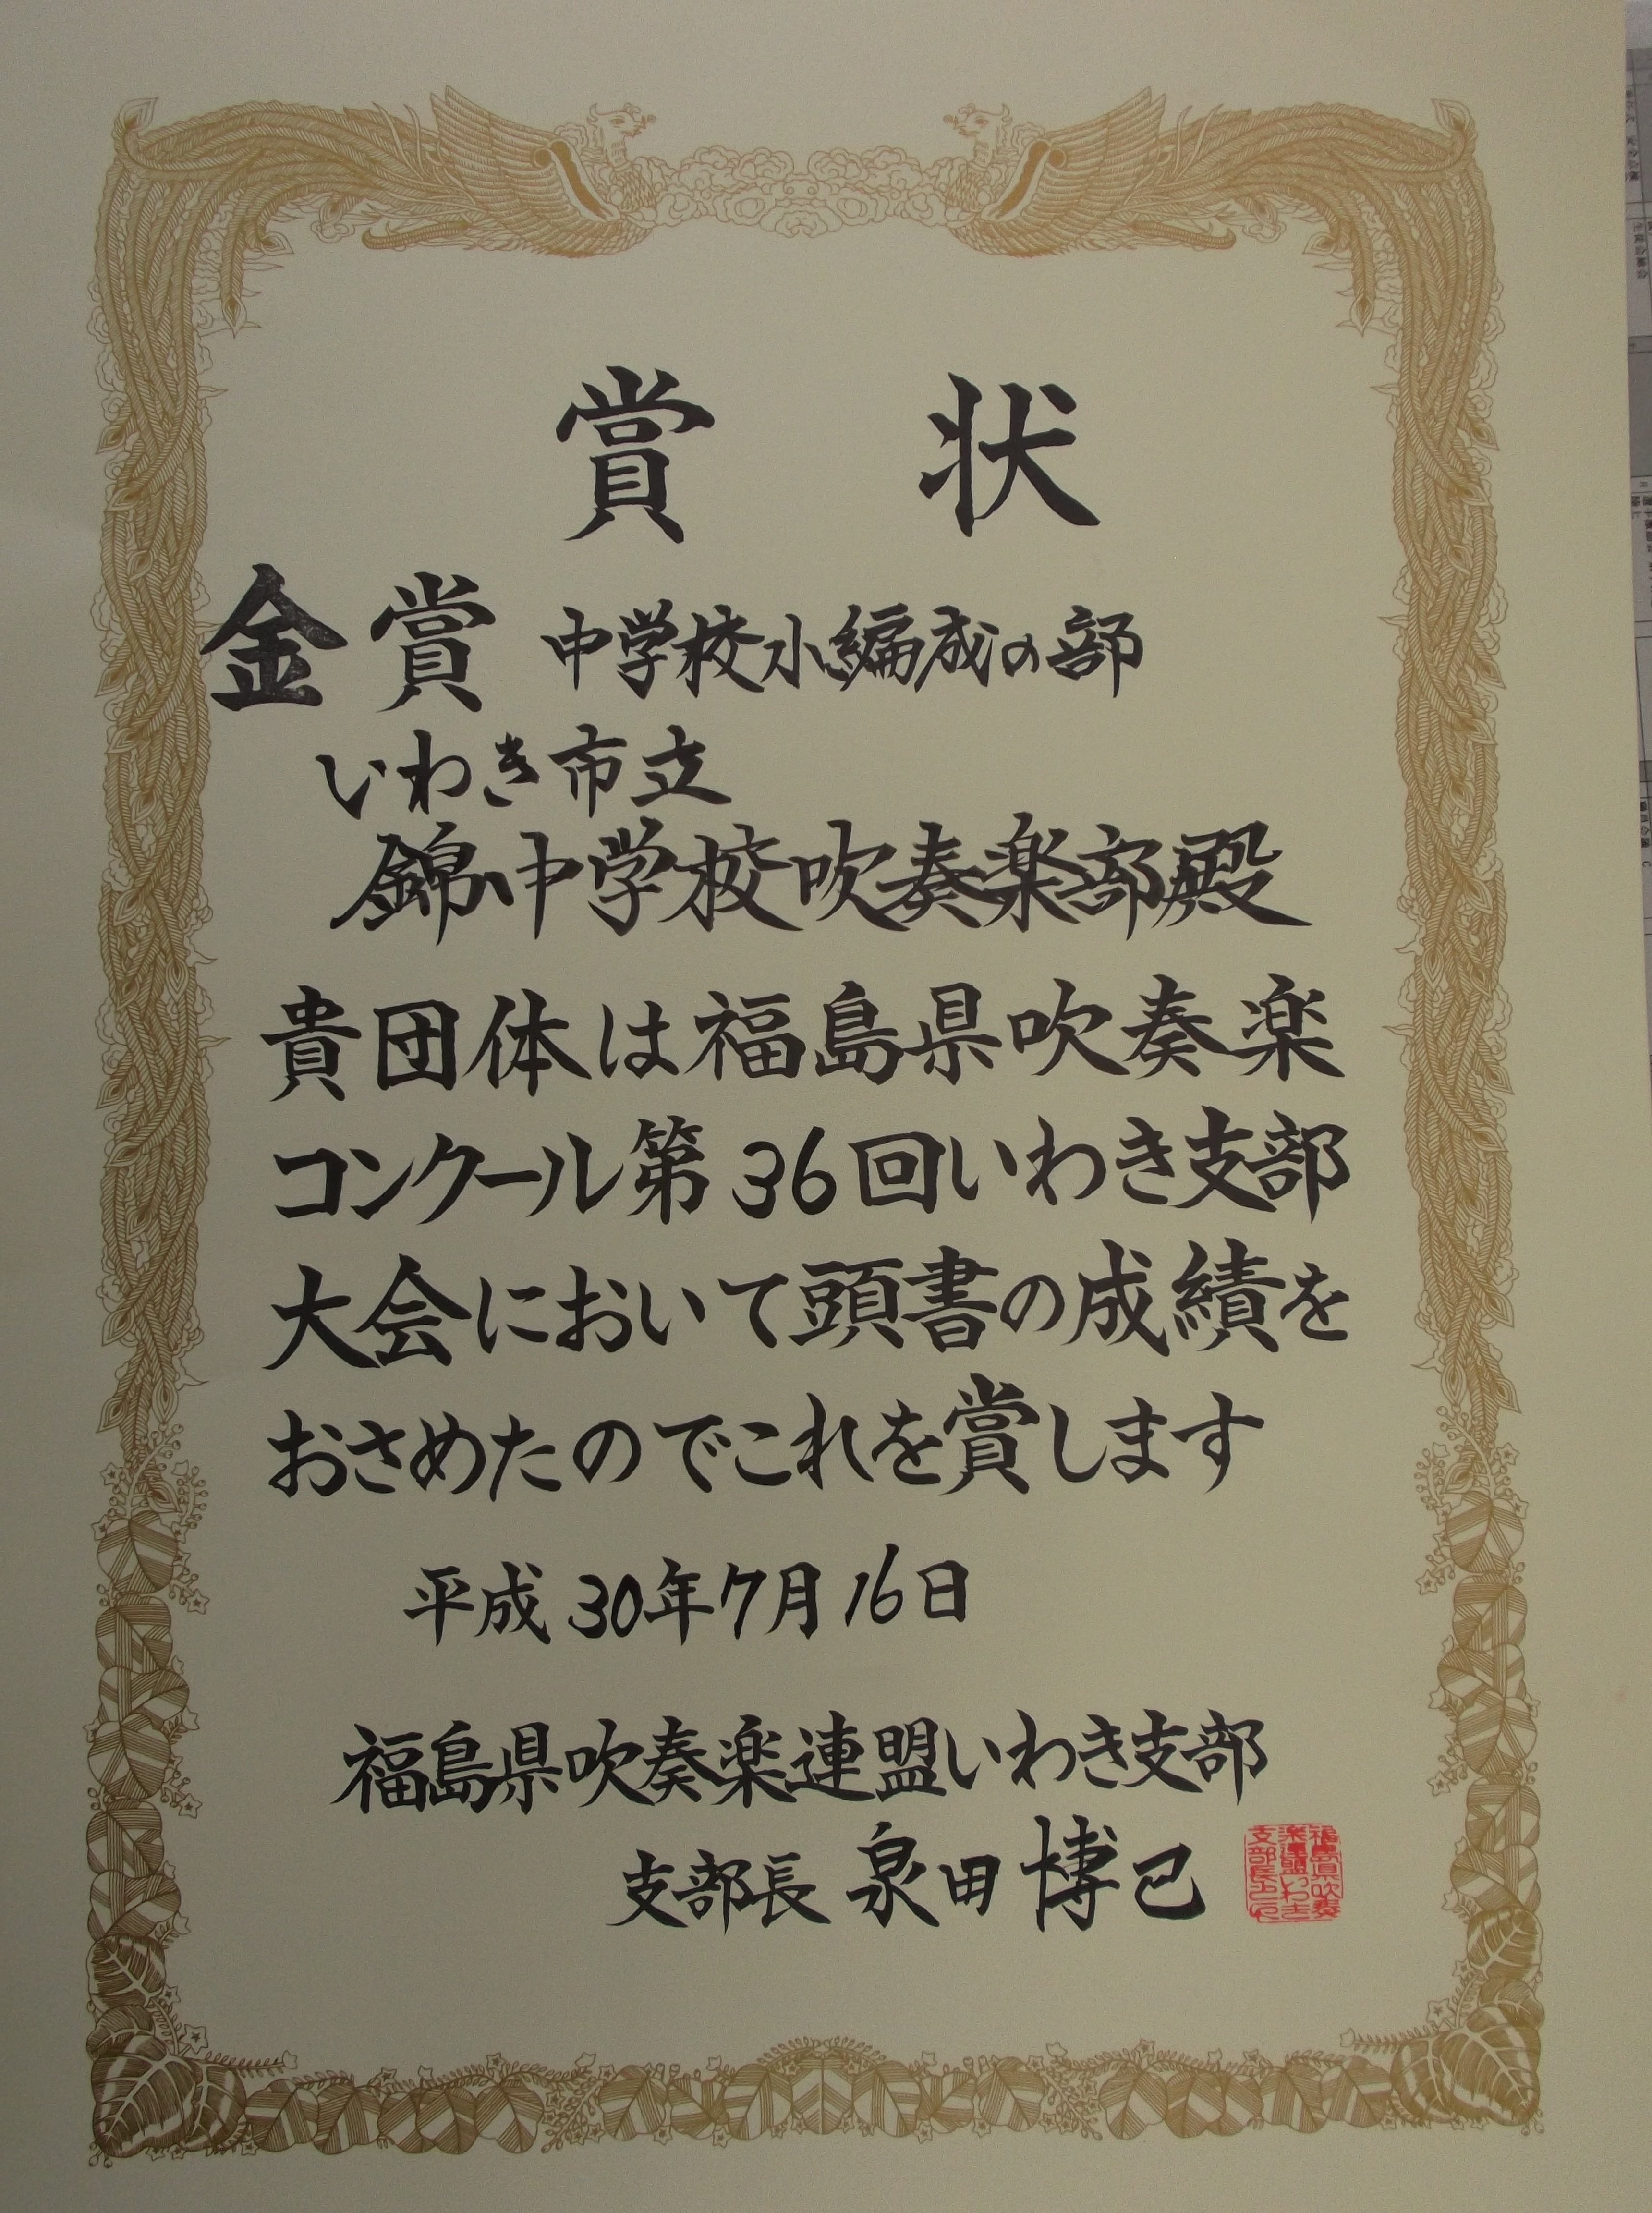 賞状
金賞 中学校小編成の部
いわき市立
錦中学校吹奏楽部殿
貴団体は福島県吹奏楽
コンクール第36回いわき支部
大会において頭書の成績を
おさめたのでこれを賞します
平成30年7月16日
福島県吹奏楽連盟いわき支部
支部長 泉田博己